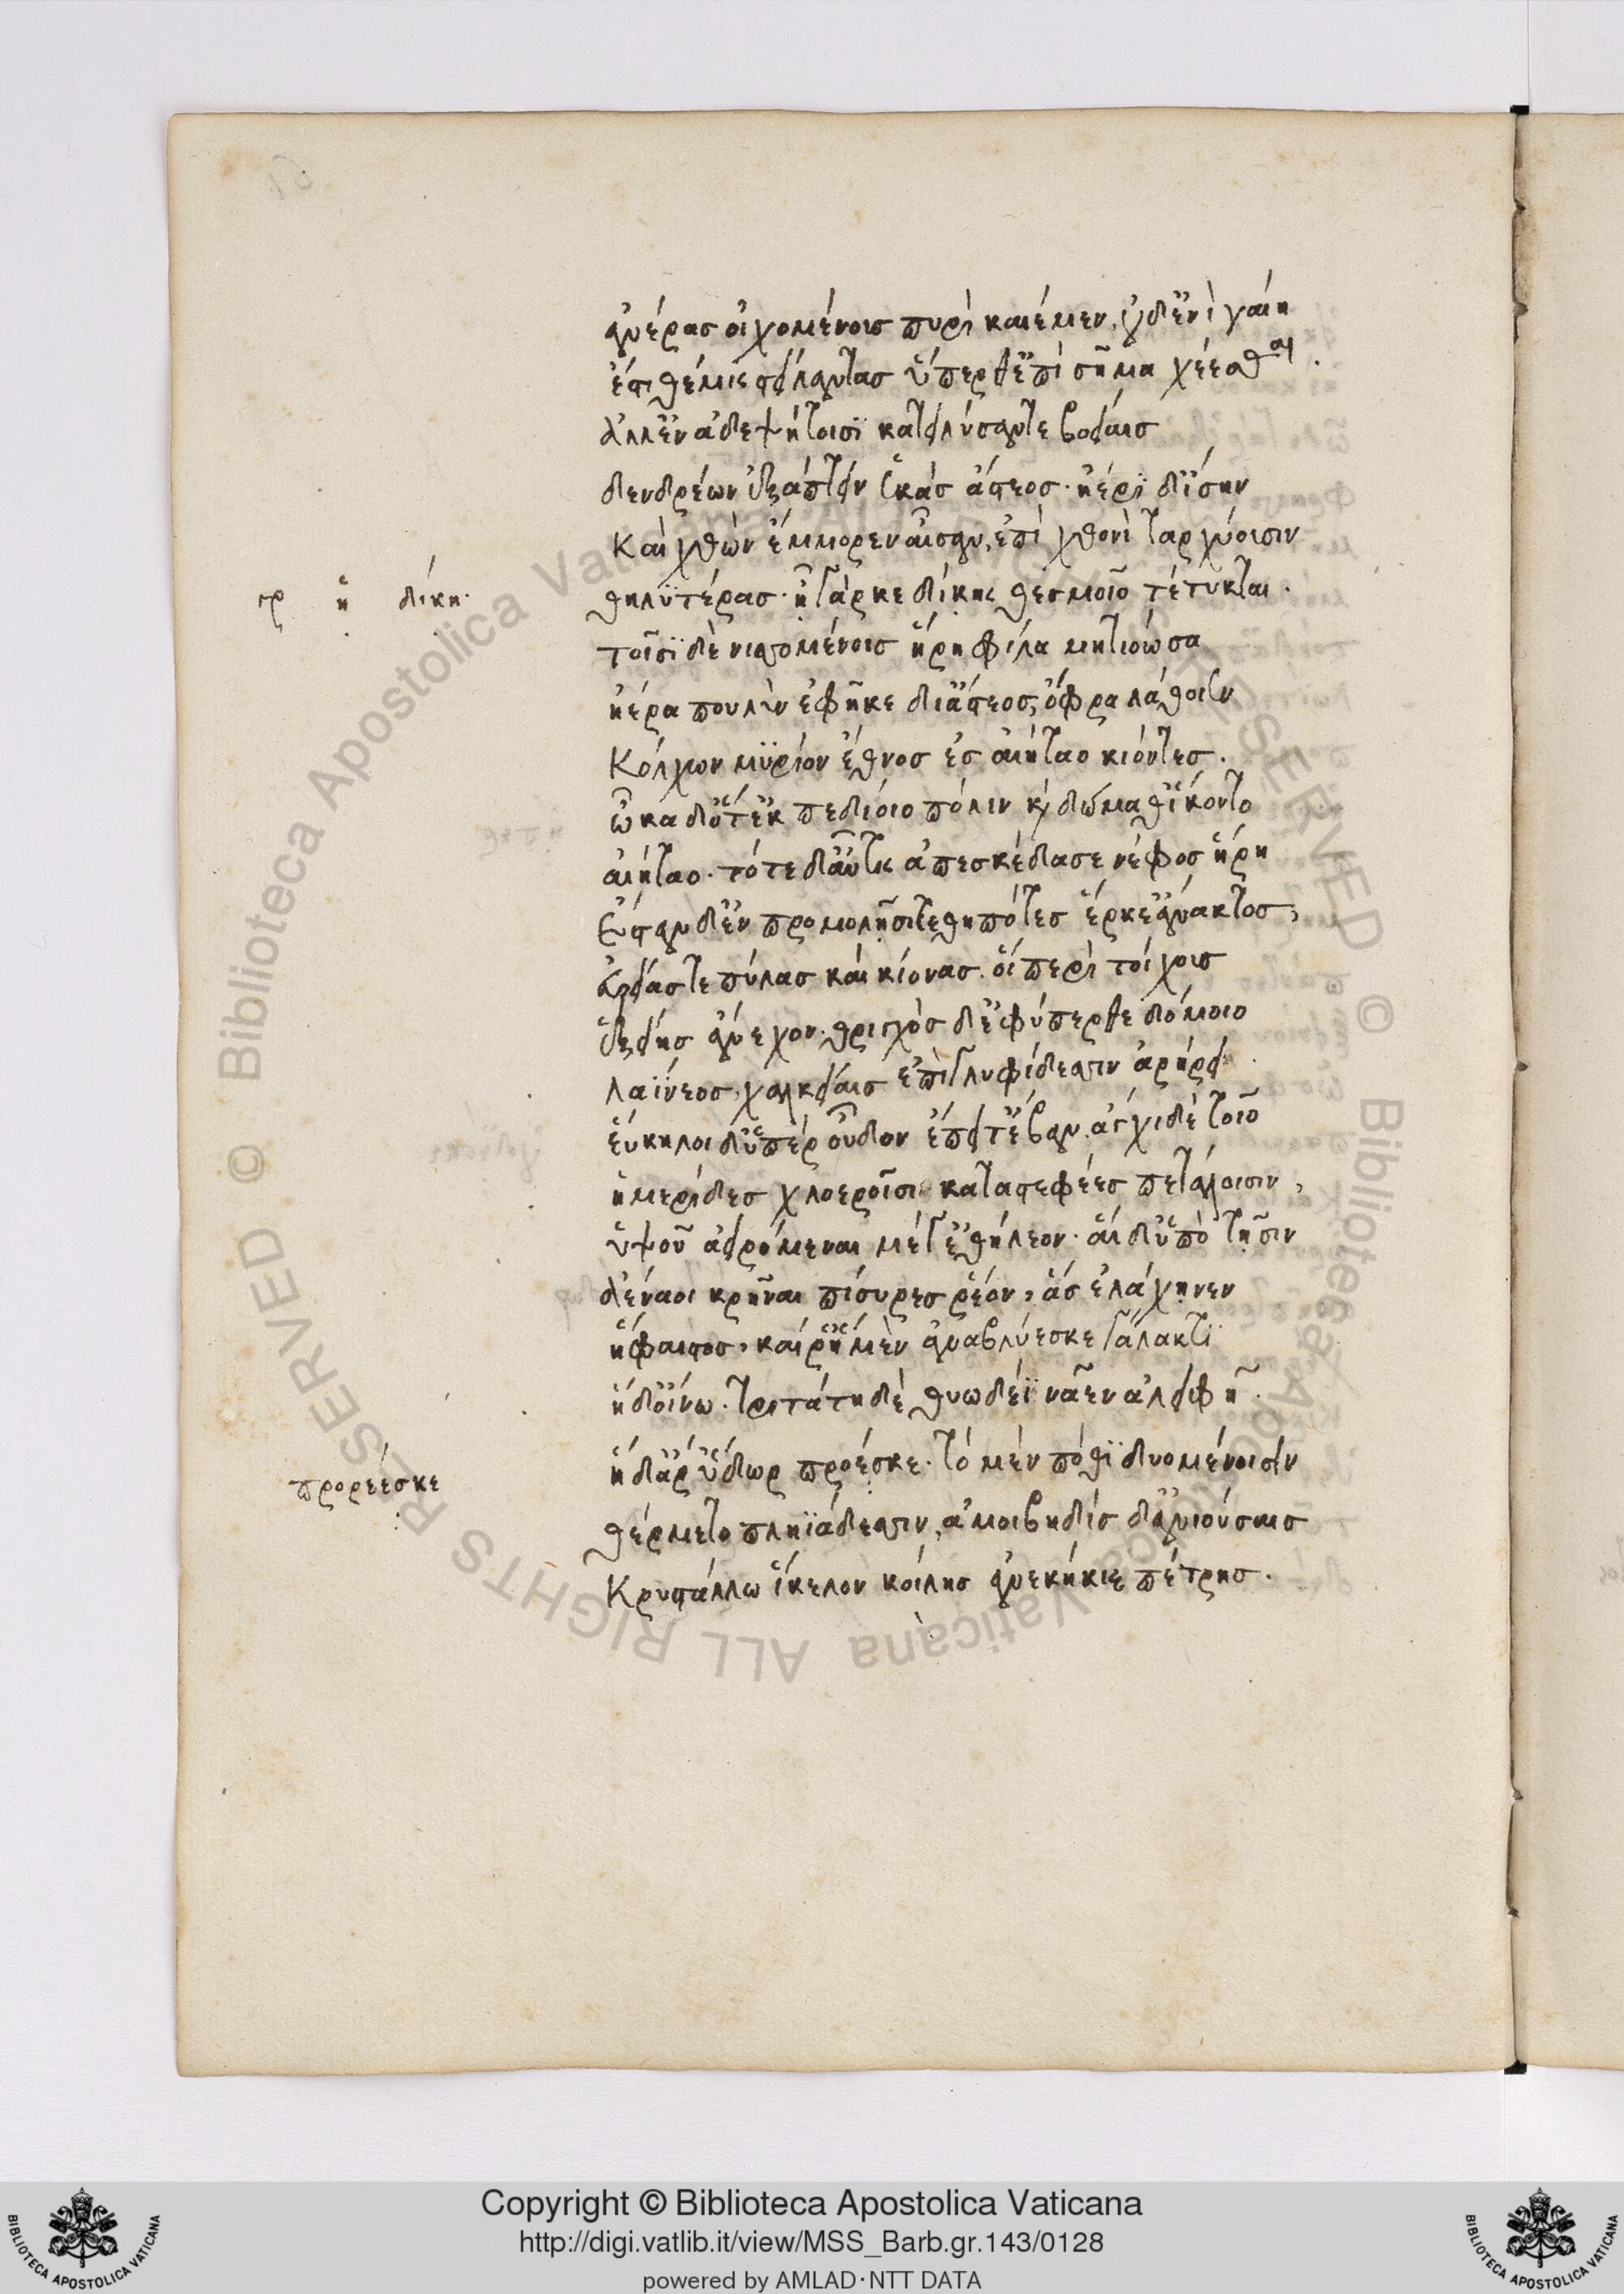 ἀνέρας οἰχομένους πυρὶ καιέμεν. οὐδ' ἐνὶ γαίῃ
ἔστι θέμις στείλαντας ὕπερθ' ἐπὶ σῆμα χέεσθαι.
ἀλλ' ἐν ἀδεψήτοισι κατειλύσαντε βοείαις
δενδρέων ἐξάπτειν ἑκὰς ἄστεος. ἠέρι δ' ἴσην
καὶ χθὼν ἔμμορεν αἶσαν, ἐπὶ χθονὶ ταρχύουσιν
γρ ἡ δίκη.
θηλυτέρας. ἡ γάρ κε δίκης θεσμοῖο τέτυκται.
τοῖσι δὲ νισσομένοις ἥρη φίλα μητιόωσα
ἠέρα πουλὺν ἐφῆκε δι' ἄστεος, ὄφρα λάθοιεν
Κόλχων μυρίον ἔθνος ἐς αἰήταο κιόντες.
ὦκα δ' ὅτ' ἐκ πεδίοιο πόλιν καὶ δώμαθ' ἵκοντο
αἰήταο. τότε δ' αὖτις ἀπεσκέδασε νέφος ἥρη
ἔσταν δ' ἐν προμολῇσι τεθηπότες ἕρκε' ἄνακτος,
εὐρείας τε πύλας καὶ κίονας. οἳ περὶ τοίχους
ἑξείης ἄνεχον. θριγκὸς δ' ἐφύπερθε δόμοιο
λαΐνεος, χαλκέαις ἐπὶ γλυφίδεσσιν ἀρήρει.
εὔκηλοι δ' ὑπὲρ οὖδον ἔπειτ' ἔβαν. ἄγχι δὲ τοῖο
ἡμερίδες χλοεροῖσι καταστεφέες πετάλοισιν,
ὑψοῦ ἀειρόμεναι μέγ' ἐθήλεον. αἱ δ' ὑπὸ τῇσιν
ἀέναοι κρῆναι πίσυρες ῥέον, ἃς ἐλάχηνεν
ἥφαιστος. καί ῥ' ἡ μὲν ἀναβλύεσκε γάλακτι
ἡ δ' οἴνῳ. τριτάτη δὲ θυώδεϊ νᾶεν ἀλοιφῇ.
προρεέσκε
ἡ δ' ἄρ' ὕδωρ προέσκε. τὸ μέν ποθι δυομένοισιν
θέρμετο πληϊάδεσσιν, ἀμοιβηδὶς δ' ἀνιούσαις
Κρυστάλλῳ ἴκελον κοίλης ἀνεκήκιε πέτρης.
Copyright © Biblioteca Apostolica Vaticana
http://digi.vatlib.it/view/MSS_Barb.gr.143/0128
powered by AMLAD·NTT DATA
BIBLIOTECA APOSTOLICA VATICANA
BIBLIOTECA APOSTOLICA VATICANA
© Biblioteca Apostolica Vaticana ALL RIGHTS RESERVED
© Biblioteca Apostolica Vaticana ALL RIGHTS RESERVED